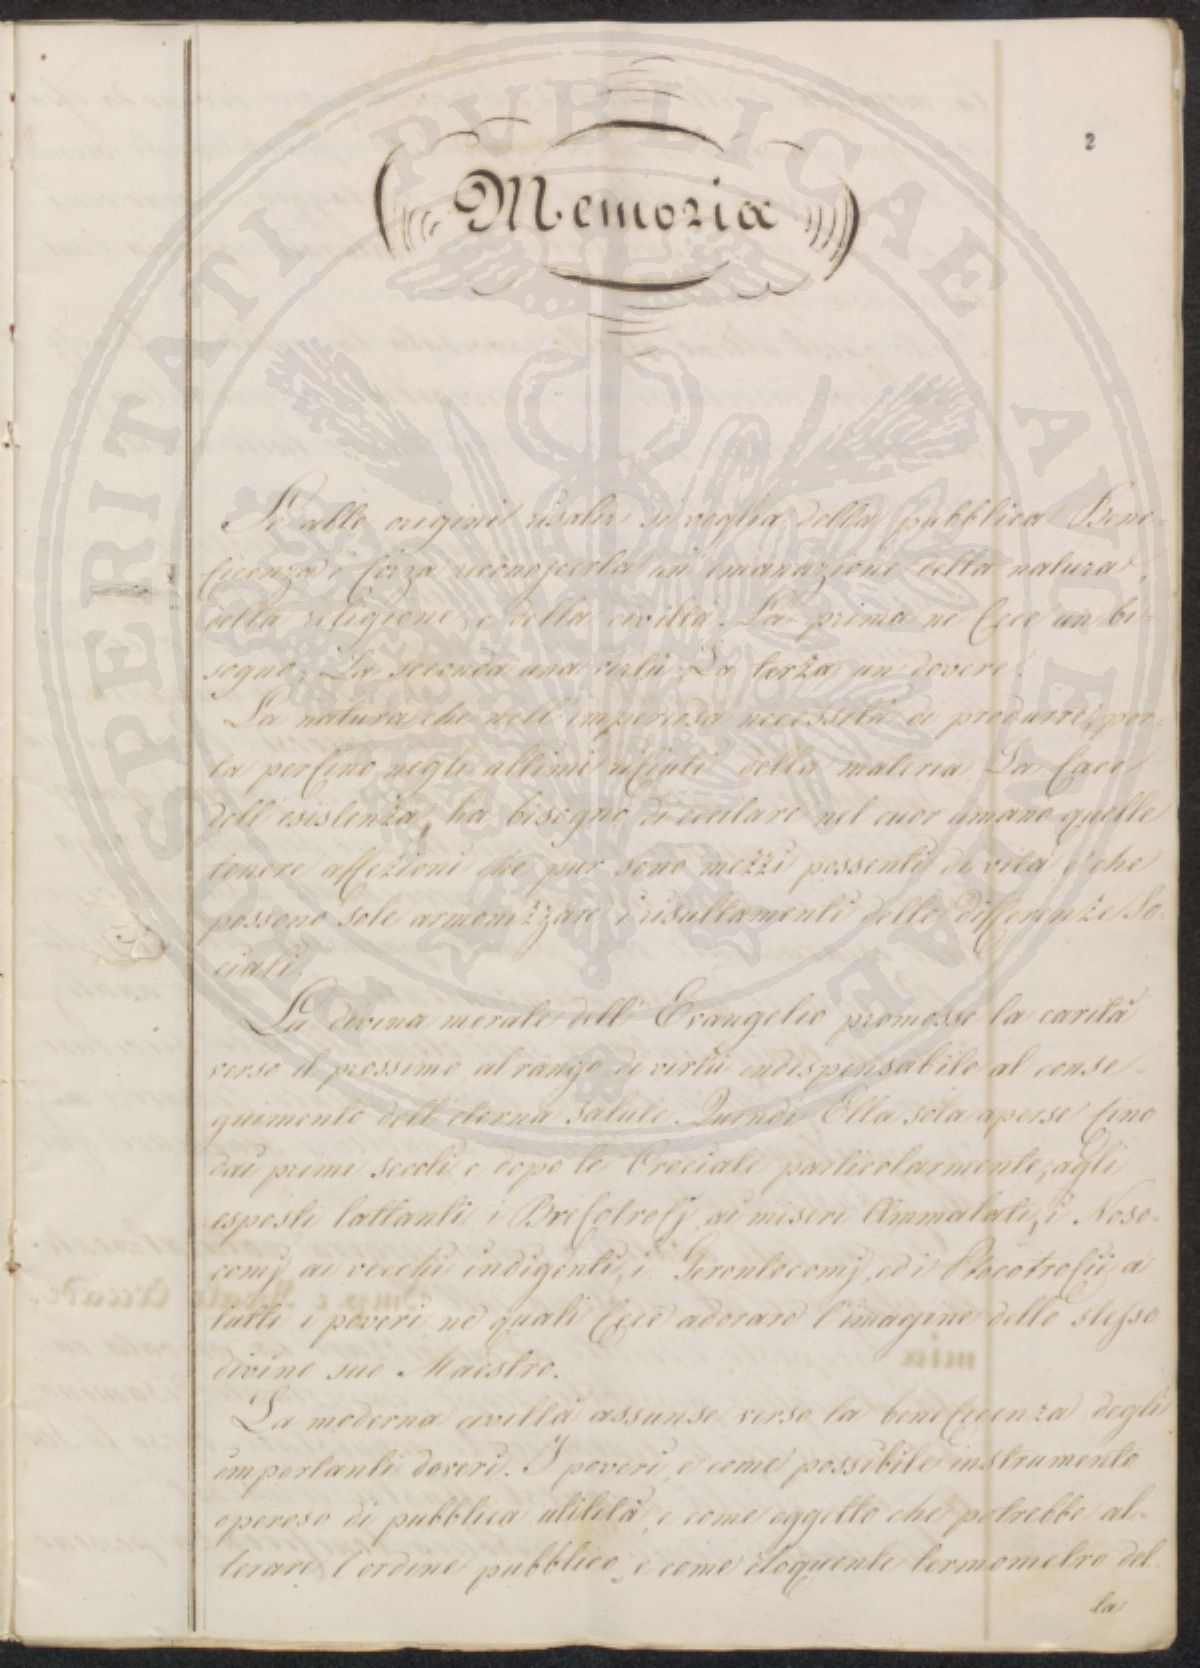 2
Memoria
Se alle origini risalir si voglia della pubblica Bene-
ficenza è forza riconoscerla un' emanazione della natura,
della religione, e della civiltà. La prima ne fece un bi-
sogno; La seconda una virtù; La terza un dovere.
La natura che nell' imperiosa necessità di produrre, por-
ta perfino negli ultimi rifiuti della materia La face
dell' esistenza, ha bisogno di eccitare nel cuor umano quelle
tenere affezioni che pur sono mezzi possenti di vita, e che
possono sole armonizzare i risultamenti delle differenze So-
ciali.
La divina morale dell' Evangelio promosse la carità
verso il prossimo al rango di virtù indispensabile al conse-
guimento dell' eterna salute. Quindi Ella sola aperse fino
dai primi secoli, e dopo le Crociate particolarmente, agli
esposti lattanti i Brefotrofj, ai miseri Ammalati, i Noso-
comj, ai vecchi indigenti, i Gerontocomj, ed i Ptocotrofii a
tutti i poveri ne quali fece adorare l'imagine dello stesso
divino suo Maestro.
La moderna civiltà assunse verso la beneficenza degli
importanti doveri. I poveri, e come possibile instrumento
operoso di pubblica utilità, e come oggetto che potrebbe al-
terare l'ordine pubblico, e come eloquente termometro del
la
PROSPERITATI PVBLICAE AVGENDAE